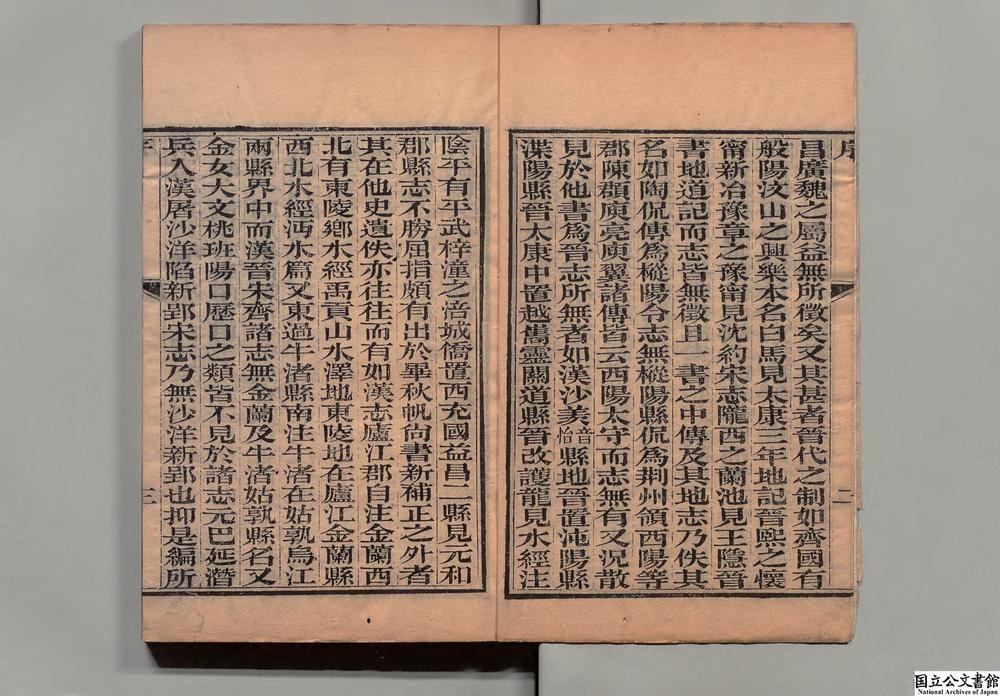 序 二
昌廣魏之屬益無所徵矣又其甚者晉代之制如齊國有
般陽汶山之興樂本名白馬見太康三年地記晉熙之懷
甯新冶豫章之豫甯見沈約宋志隴西之蘭池見王隱晉
書地道記而志皆無徵且一書之中傳及其地志乃佚其
名如陶侃傳爲樅陽令志無樅陽縣侃爲荆州領西陽等
郡陳頵庾亮庾翼諸傳皆云西陽太守而志無有又況散
見於他書爲晉志所無者如漢沙羡音怡縣地晉置沌陽縣
渫陽縣晉太康中置越巂靈關道縣晉改護龍見水經注
陰平有平武梓潼之涪城僑置西充國益昌二縣見元和
郡縣志不勝屈指頗有出於畢秋帆尙書新補正之外者
其在他史遺佚亦往往而有如漢志廬江郡自注金蘭西
北有東陵鄉水經禹貢山水澤地東陵地在廬江金蘭縣
西北水經沔水篇又東過牛渚縣南注牛渚在姑孰烏江
兩縣界中而漢晉宋齊諸志無金蘭及牛渚姑孰縣名又
金女大文桃班陽口歷口之類皆不見於諸志元巴延潛
兵入漢屠沙洋陷新郢宋志乃無沙洋新郢也抑是編所
三
国立公文書館
National Archives of Japan